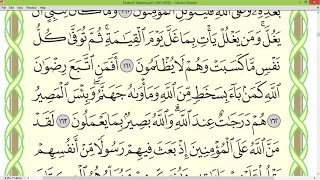 بَعْدِهِۦ وَعَلَى ٱللَّهِ فَلْيَتَوَكَّلِ ٱلْمُؤْمِنُونَ ١٦٠ وَمَا كَانَ لِنَبِىٍّ أَن
يَغُلَّ وَمَن يَغْلُلْ يَأْتِ بِمَا غَلَّ يَوْمَ ٱلْقِيَٰمَةِ ثُمَّ تُوَفَّىٰ كُلُّ
نَفْسٍ مَّا كَسَبَتْ وَهُمْ لَا يُظْلَمُونَ ١٦١ أَفَمَنِ ٱتَّبَعَ رِضْوَٰنَ
ٱللَّهِ كَمَنۢ بَآءَ بِسَخَطٍ مِّنَ ٱللَّهِ وَمَأْوَىٰهُ جَهَنَّمُ وَبِئْسَ ٱلْمَصِيرُ
١٦٢ هُمْ دَرَجَٰتٌ عِندَ ٱللَّهِ وَٱللَّهُ بَصِيرٌۢ بِمَا يَعْمَلُونَ ١٦٣ لَقَدْ
مَنَّ ٱللَّهُ عَلَى ٱلْمُؤْمِنِينَ إِذْ بَعَثَ فِيهِمْ رَسُولًا مِّنْ أَنفُسِهِمْ